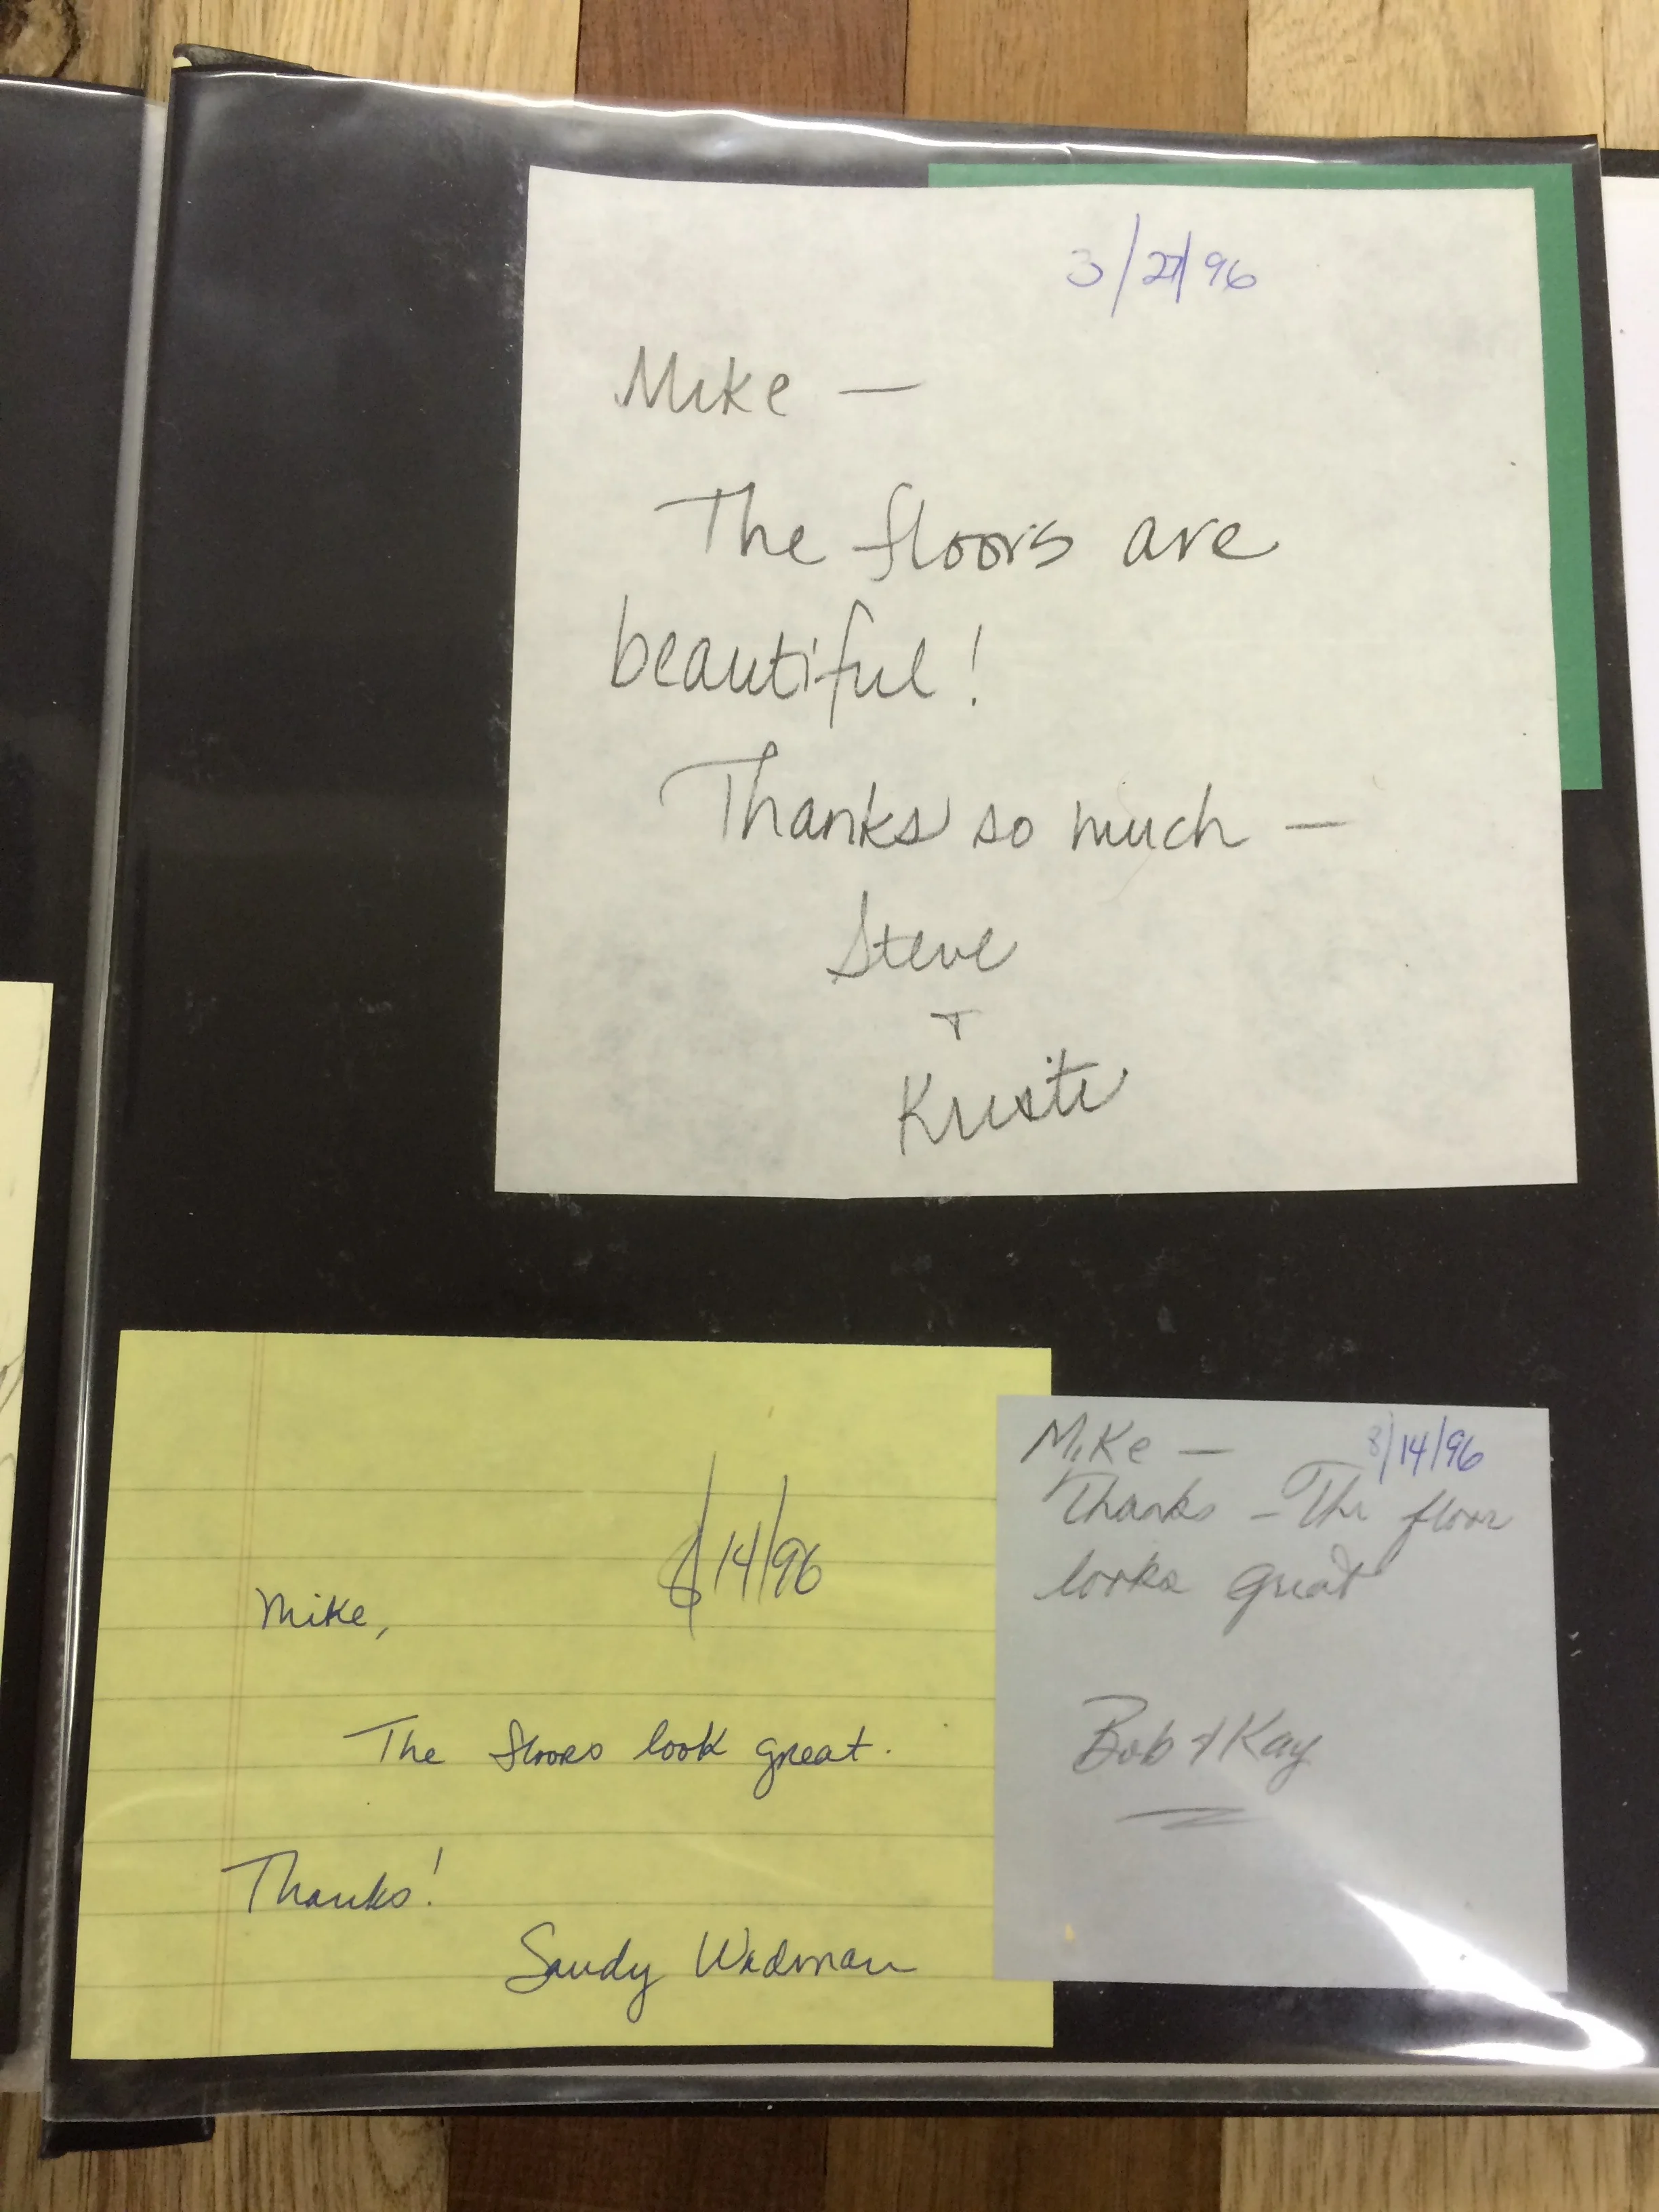 3/27/96
Mike —
The floors are
beautiful!
Thanks so much —
Steve
+
Kristi
8/14/96
Mike,
The floors look great.
Thanks!
Sandy Wadman
Mike — 8/14/96
Thanks – The floor
looks great
Bob & Kay